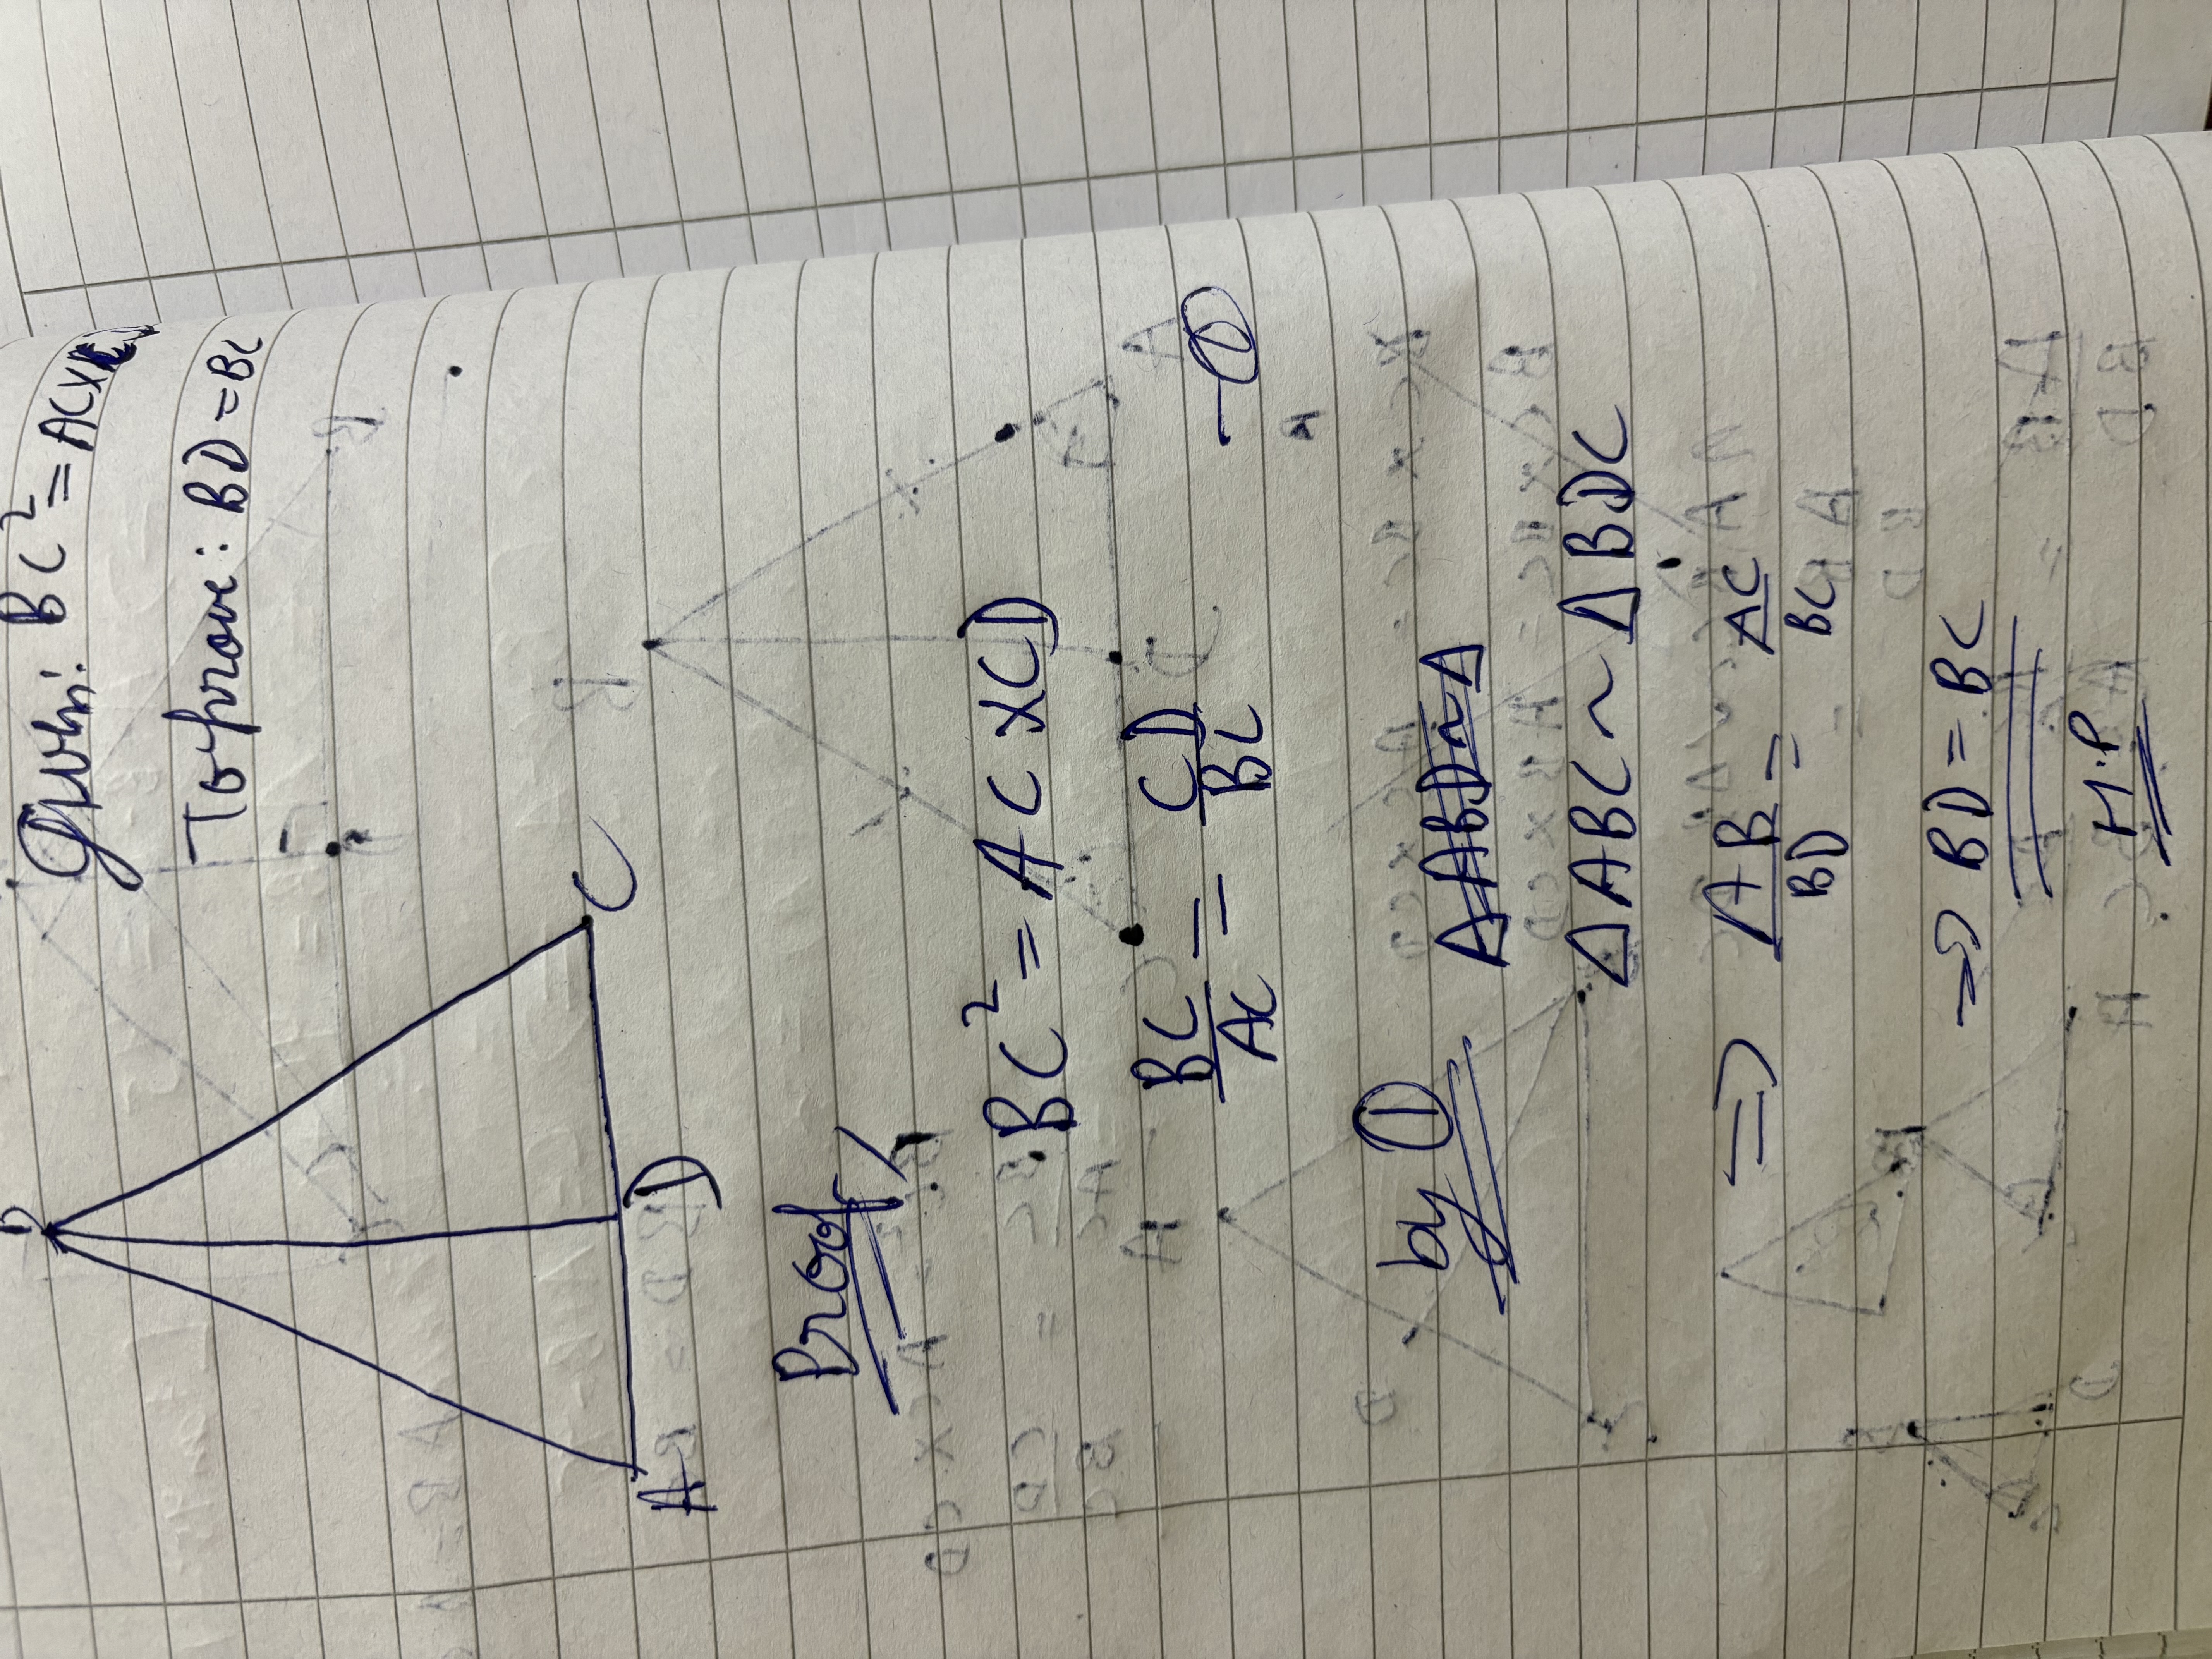 Given: BC² = ACX
To prove: BD = BC
B
C
D
A
Proof
BC² = AC X CD
BC/AC = CD/BC —①
by ① ΔABD ~ Δ
ΔABC ~ ΔBDC
⇒ AB/BD = AC/BC
⇒ BD = BC
H.P